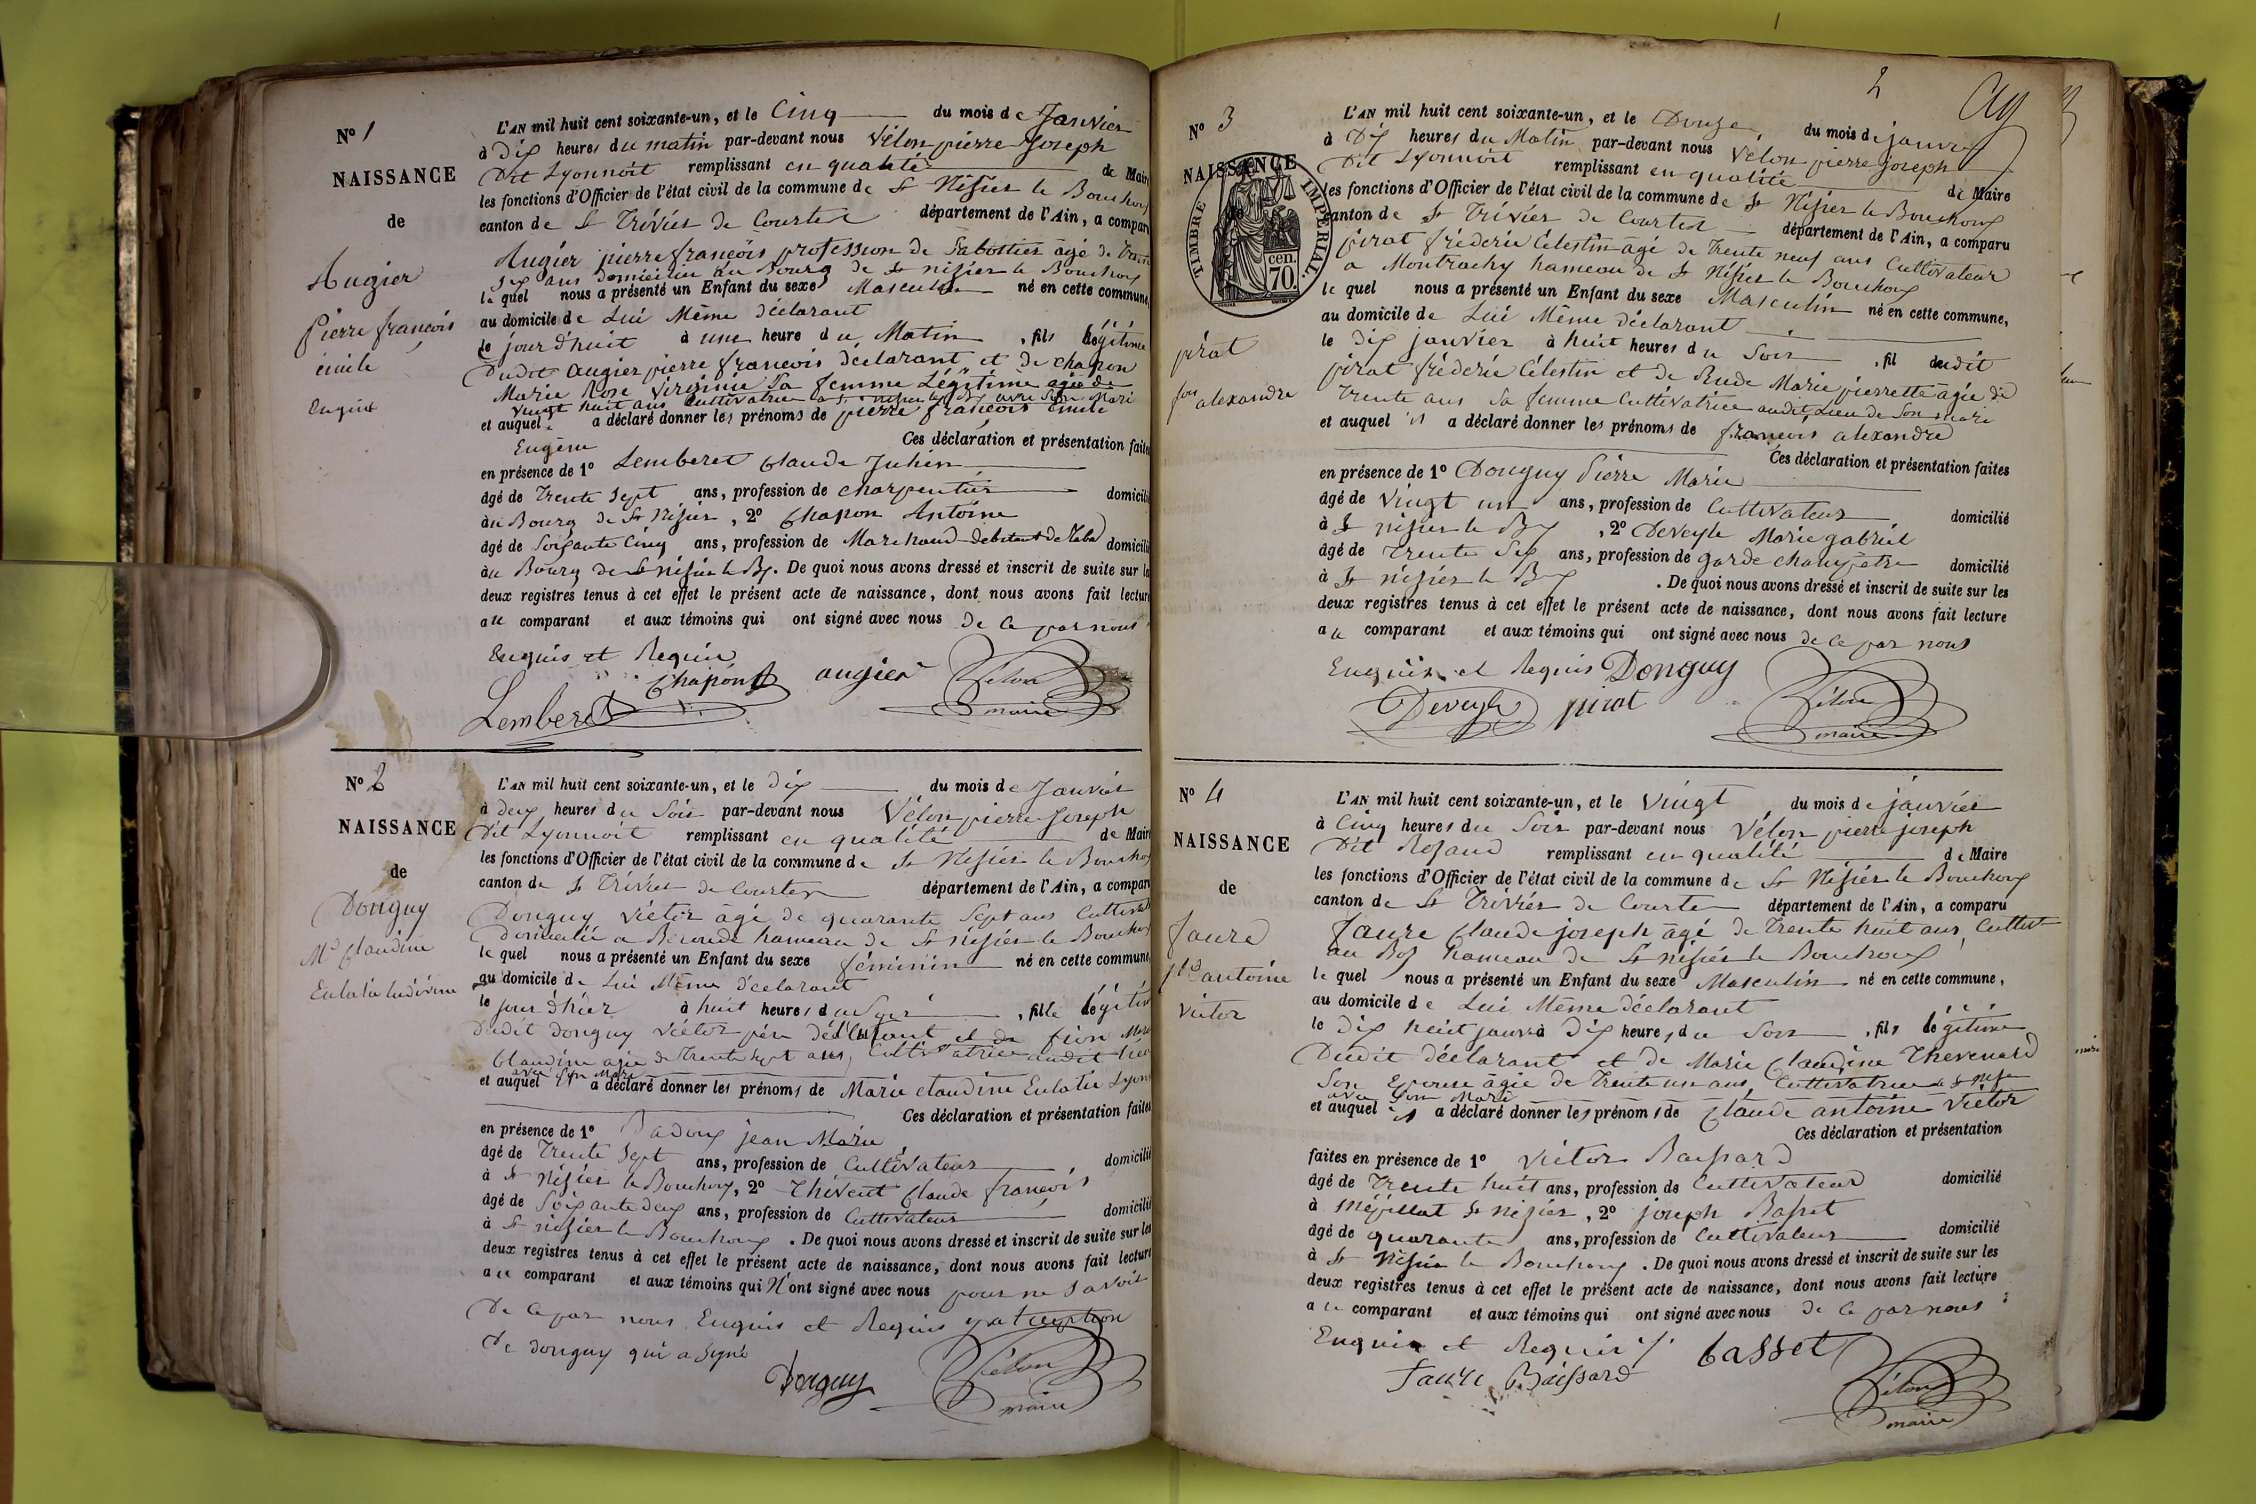 N° 1
NAISSANCE
de
Augier
pierre françois
émile
Eugène
L'AN mil huit cent soixante-un, et le Cinq du mois de Janvier
à Dix heures du matin par-devant nous Vélon pierre Joseph
Dit Lyonnoit remplissant en qualité de Maire
les fonctions d'Officier de l'état civil de la commune de St Nizier le Bouchoux
canton de St Trivier de Courtes département de l'Ain, a comparu
Augier pierre françois profession de Sabottier âgé de trente
Six ans Domicilié au Bourg de St nizier le Bouchoux
le quel nous a présenté un Enfant du sexe Masculin né en cette commune,
au domicile de Lui Même déclarant
le jour d'huit à une heure du Matin, fils légitime
Dudit augier pierre françois déclarant et de chapon
Marie Rose Virginie Sa femme Légitime agée de
vingt huit ans Cultivatrice a St nizier le Bx avec Son Mari
et auquel a déclaré donner les prénoms de pierre françois Emile
Eugène Ces déclaration et présentation faites
en présence de 1° Lemberet Claude Juhin
âgé de Trente Sept ans, profession de charpentier domicilié
au Bourg de St Nizier, 2° Chapon Antoine
âgé de Soixante Cinq ans, profession de Marchand debitant de Taba domicilié
au Bourg de St nizier le Bx. De quoi nous avons dressé et inscrit de suite sur les
deux registres tenus à cet effet le présent acte de naissance, dont nous avons fait lecture
au comparant et aux témoins qui ont signé avec nous de ce par nous
Enquis et Requis
Chapon augier Vélon
Lemberet maire
N° 2
NAISSANCE
de
Donguy
Me Claudine
Eulalie
L'AN mil huit cent soixante-un, et le dix du mois de Janvier
à deux heures du Soir par-devant nous Vélon pierre Joseph
Dit Lyonnoit remplissant en qualité de Maire
les fonctions d'Officier de l'état civil de la commune de St Nizier le Bouchoux
canton de St Trivier de Courtes département de l'Ain, a comparu
Donguy Victor âgé de quarante Sept ans Cultivateur
Domicilié a hameau de St nizier le Bouchoux
le quel nous a présenté un Enfant du sexe féminin né en cette commune,
au domicile de Lui Même déclarant
le jour d'hier à huit heures du, fille légitime
Dudit donguy victor père déclarant et de fion Marie
Claudine agée de Trente Sept ans, Cultivatrice audit lieu
avec Son Mari
et auquel il a déclaré donner les prénoms de Marie Claudine Eulalie
Ces déclaration et présentation faites
en présence de 1° Badoux jean Marie
âgé de Trente Sept ans, profession de Cultivateur domicilié
à St Nizier le Bouchoux, 2° Thévent Claude françois
âgé de Soixante deux ans, profession de Cultivateur domicilié
à St nizier le Bouchoux. De quoi nous avons dressé et inscrit de suite sur les
deux registres tenus à cet effet le présent acte de naissance, dont nous avons fait lecture
au comparant et aux témoins qui N'ont signé avec nous pour ne Savoir
De ce par nous Enquis et Requis
de donguy qui a Signé
Donguy Vélon
maire
2
N° 3
NAISSANCE
de
TIMBRE IMPÉRIAL
cen.
70.
pirat
fois alexandre
L'AN mil huit cent soixante-un, et le Douze, du mois de janvier
à Dix heures du Matin par-devant nous Vélon pierre joseph
Dit Lyonnoit remplissant en qualité de Maire
les fonctions d'Officier de l'état civil de la commune de St Nizier le Bouchoux
canton de St Trivier de Courtes département de l'Ain, a comparu
pirat fréderic Célestin agé de Trente neuf ans Cultivateur
a Montrachy hameau de St Nizier le Bouchoux
le quel nous a présenté un Enfant du sexe Masculin né en cette commune,
au domicile de Lui Même déclarant
le dix janvier à huit heures du Soir, fil dudit
pirat fréderic Célestin et de Rude Marie pierrette âgée de
Trente ans Sa femme Cultivatrice audit Lieu de Son mari
et auquel il a déclaré donner les prénoms de françois alexandre
Ces déclaration et présentation faites
en présence de 1° Donguy Pierre Marie
âgé de vingt un ans, profession de Cultivateur domicilié
à St nizier le Bx, 2° Deveyle Marie gabriel
âgé de Trente Six ans, profession de garde champêtre domicilié
à St nizier le Bx. De quoi nous avons dressé et inscrit de suite sur les
deux registres tenus à cet effet le présent acte de naissance, dont nous avons fait lecture
au comparant et aux témoins qui ont signé avec nous de ce par nous
Enquis et Requis Donguy
Deveyle pirat Vélon
maire
N° 4
NAISSANCE
de
Faure
Cde antoine
victor
L'AN mil huit cent soixante-un, et le vingt du mois de janvier
à Cinq heures du Soir par-devant nous Vélon pierre joseph
Dit remplissant en qualité de Maire
les fonctions d'Officier de l'état civil de la commune de St Nizier le Bouchoux
canton de St Trivier de Courte département de l'Ain, a comparu
Faure Claude joseph âgé de Trente huit ans, Cultivt
au hameau de St nizier le Bouchoux
le quel nous a présenté un Enfant du sexe Masculin né en cette commune,
au domicile de Lui Même déclarant
le dix huit janvr à Dix heures du Soir, fils légitime
Dudit déclarant et de Marie Claudine Thevenard
Son Epouse âgée de Trente un ans, Cultivatrice a St Nizie
avec Son Mari
et auquel il a déclaré donner les prénoms de Claude antoine Victor
Ces déclaration et présentation
faites en présence de 1° Victor Raissard
âgé de Trente huit ans, profession de Cultivateur domicilié
à Mépillat St nizier, 2° joseph Basset
âgé de quarante ans, profession de Cultivateur domicilié
à St Nizier le Bouchoux. De quoi nous avons dressé et inscrit de suite sur les
deux registres tenus à cet effet le présent acte de naissance, dont nous avons fait lecture
au comparant et aux témoins qui ont signé avec nous de ce par nous
Enquis et Requis
Faure Raissard basset Vélon
maire